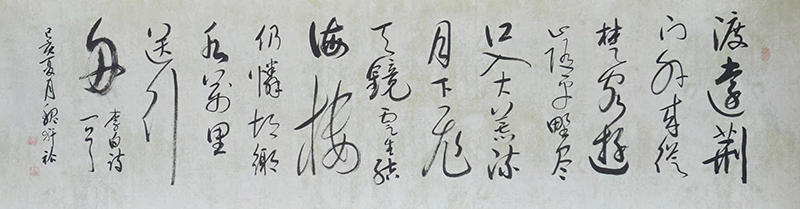 渡遠荊
门外来從
楚客遊
山隨平野尽
江入大荒流
月下飛
天鏡雲生結
海樓
仍憐故鄉
水萬里
送行
舟
李白詩
一首
己亥夏月魏